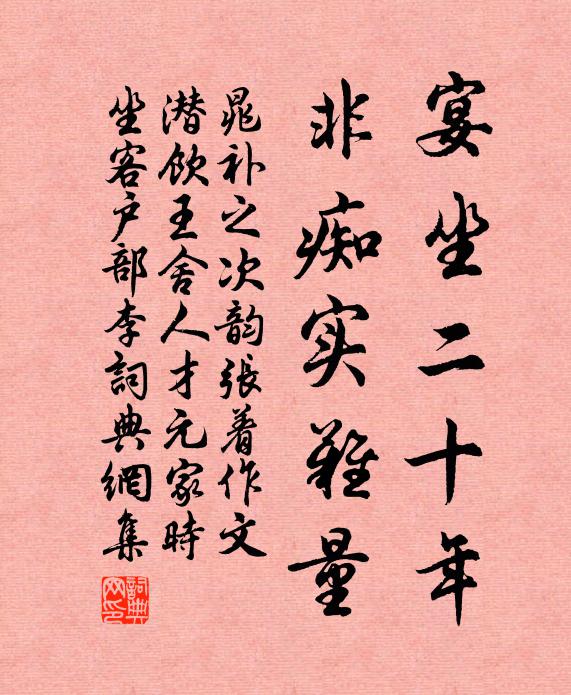 宴坐二十年
非痴实难量
晁补之次韵张着作文
潜饮王舍人才元家时
坐客户部李詞典網集
詞典网印